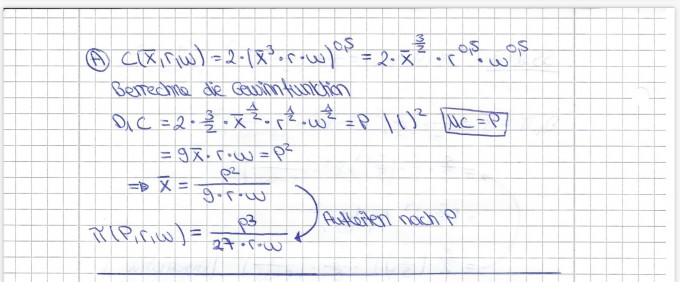 Ⓐ C(x̄,r,w) = 2·(x̄³·r·w)^0,5 = 2·x̄^(3/2)·r^0,5·w^0,5
Berrechne die Gewinnfunktion
D₁C = 2·3/2·x̄^(1/2)·r^(1/2)·w^(1/2) = P |( )² MC = P
= 9x̄·r·w = p²
⇒ x̄ = p²/(9·r·w)
π(P,r,w) = p³/(27·r·w) Aufleiten nach P